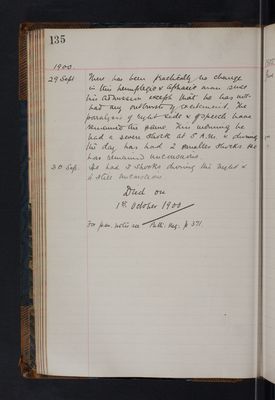 135
1900.
29 Sept There has been practically no change
in this hemiplegic & aphasic man since
his admission except that he has not
had any outbursts of excitement. The
paralysis of right side & of speech have
remained the same. This morning he
had a severe shock at 5 A.M. & during
the day has had 2 smaller shocks. He
has remained unconscious.
30 Sep. He had 2 shocks during the night &
is still unconscious
Died on
1st October 1900
For prev. notes see Path: Reg: p 371.